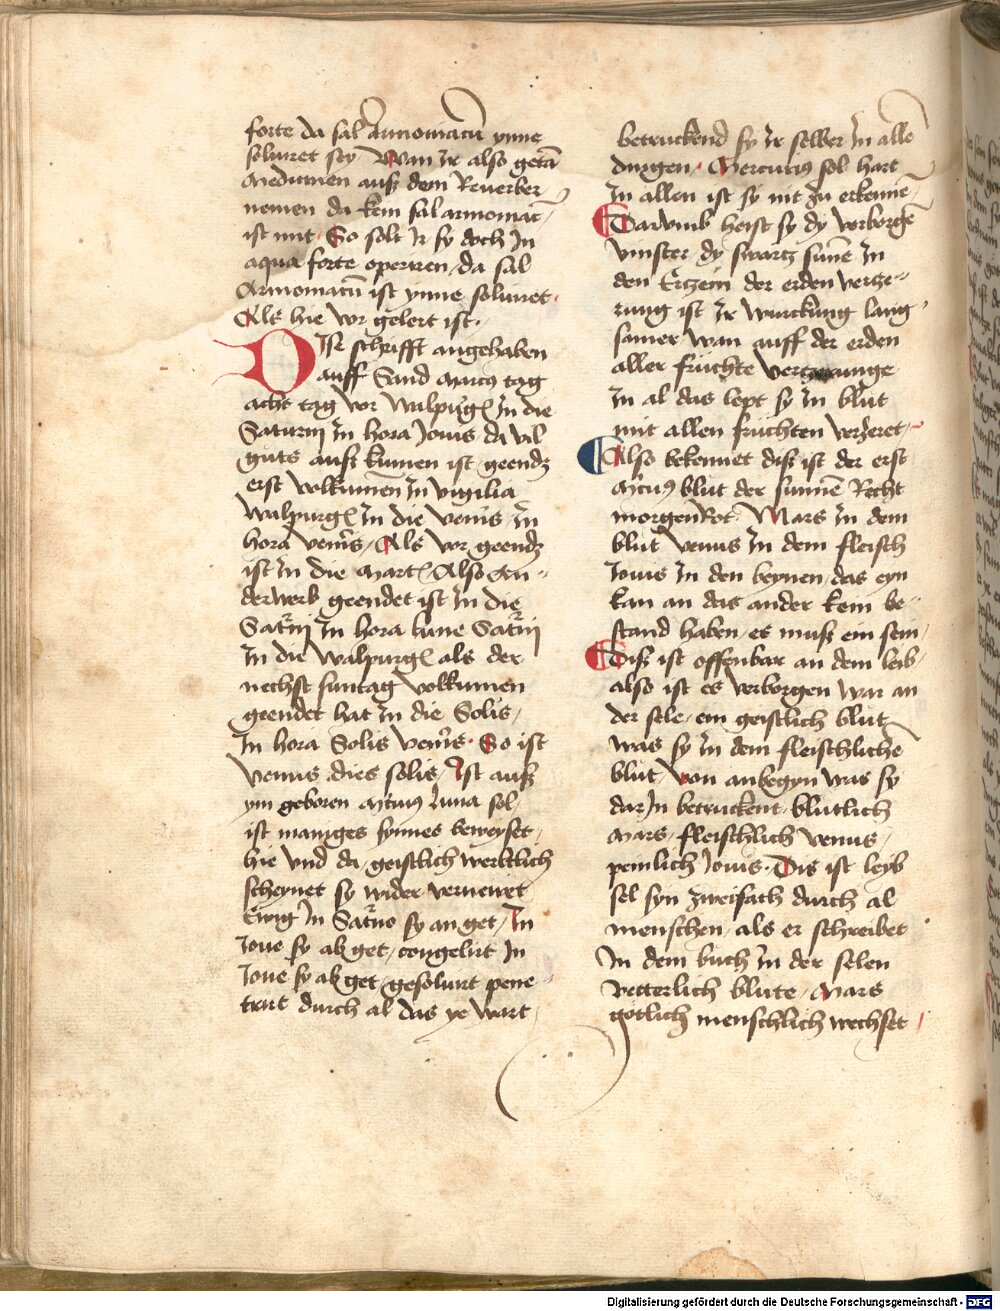 forte da sal armoniacū ynne
soluiret sey Wan Jr also getā
Medicinen auß dem Reuerber
nemen da kein sal armoniac
ist mit · So solt Jr sy doch Jn
aqua forte operiren / da sal
Armoniacū ist ynne soluiret ·
Als hie vor gelert ist ·
Dise schrifft angehaben
auff Sand Marcꝯ tag
acht tag vor walpurgꝭ Jn die
Saturnj Jn hora Jouis da vil
guts auß kumen ist / geendꝫ
erst volkumē Jn vigilia
walpurgꝭ Jn die venīs / Jn
hora venīs / Als vor geendꝫ
ist Jn die Martꝭ Also an=
derwerb geendet ist Jn die
Satrnj Jn hora lune Satrnj
Jn die walpurgꝭ als der
nechst suntag volkumen
geendet hat Jn die Solis /
Jn hora Solis venīs · So ist
venus dies solis / Jst auß
ym geboren Mcuriꝯ luna sol /
ist maniges synnes beweyset /
hie vnd da / geistlich werltlich
scheynet sy wider vernewet
Ewig Jn Satrno sy an get / Jn
Joue sy ab get / congelirt Jn
Joue sy ab get / gesoluirt pene=
trirt durch al das ye wart /
betruckend sy Jr selber Jn alle
dingen · Mercuriꝯ sol hart
Jn allen ist sy mit zu erkennē
Darvmb heist sy dy verborgē
vinster / dy swartz sunē Jn
den Erczein der erden verze=
rung ist Jr wurckung lang=
samer wan auff der erden
aller früchte
Jn al das lept sy Jn blut
mit allen früchten verzeret /
Also bekennet diß ist der erst
Mcuriꝯ blut der sunnē Recht
morgen Rot · Mars Jn dem
blut venus Jn dem fleisch
Jouis Jn den beynen / das eyn
kan an das ander kein be=
stand haben / es muß ein sein /
Diß ist offenbar an dem leib /
also ist es verborgen war an
der sele / ein geistlich blut
was sy Jn dem fleischlichē
blut / von anbegyn was sy
dar Jn betruckent · blutlich
Mars / fleischlich venus /
peinlich Jouis · Dis ist leyb
sel syn zweifach durch al
menschen / als er schreibet
Jn dem buch Jn der selen
vetterlich blute / Mars
götlich menschlich wechset /
Digitalisierung gefördert durch die Deutsche Forschungsgemeinschaft - DFG